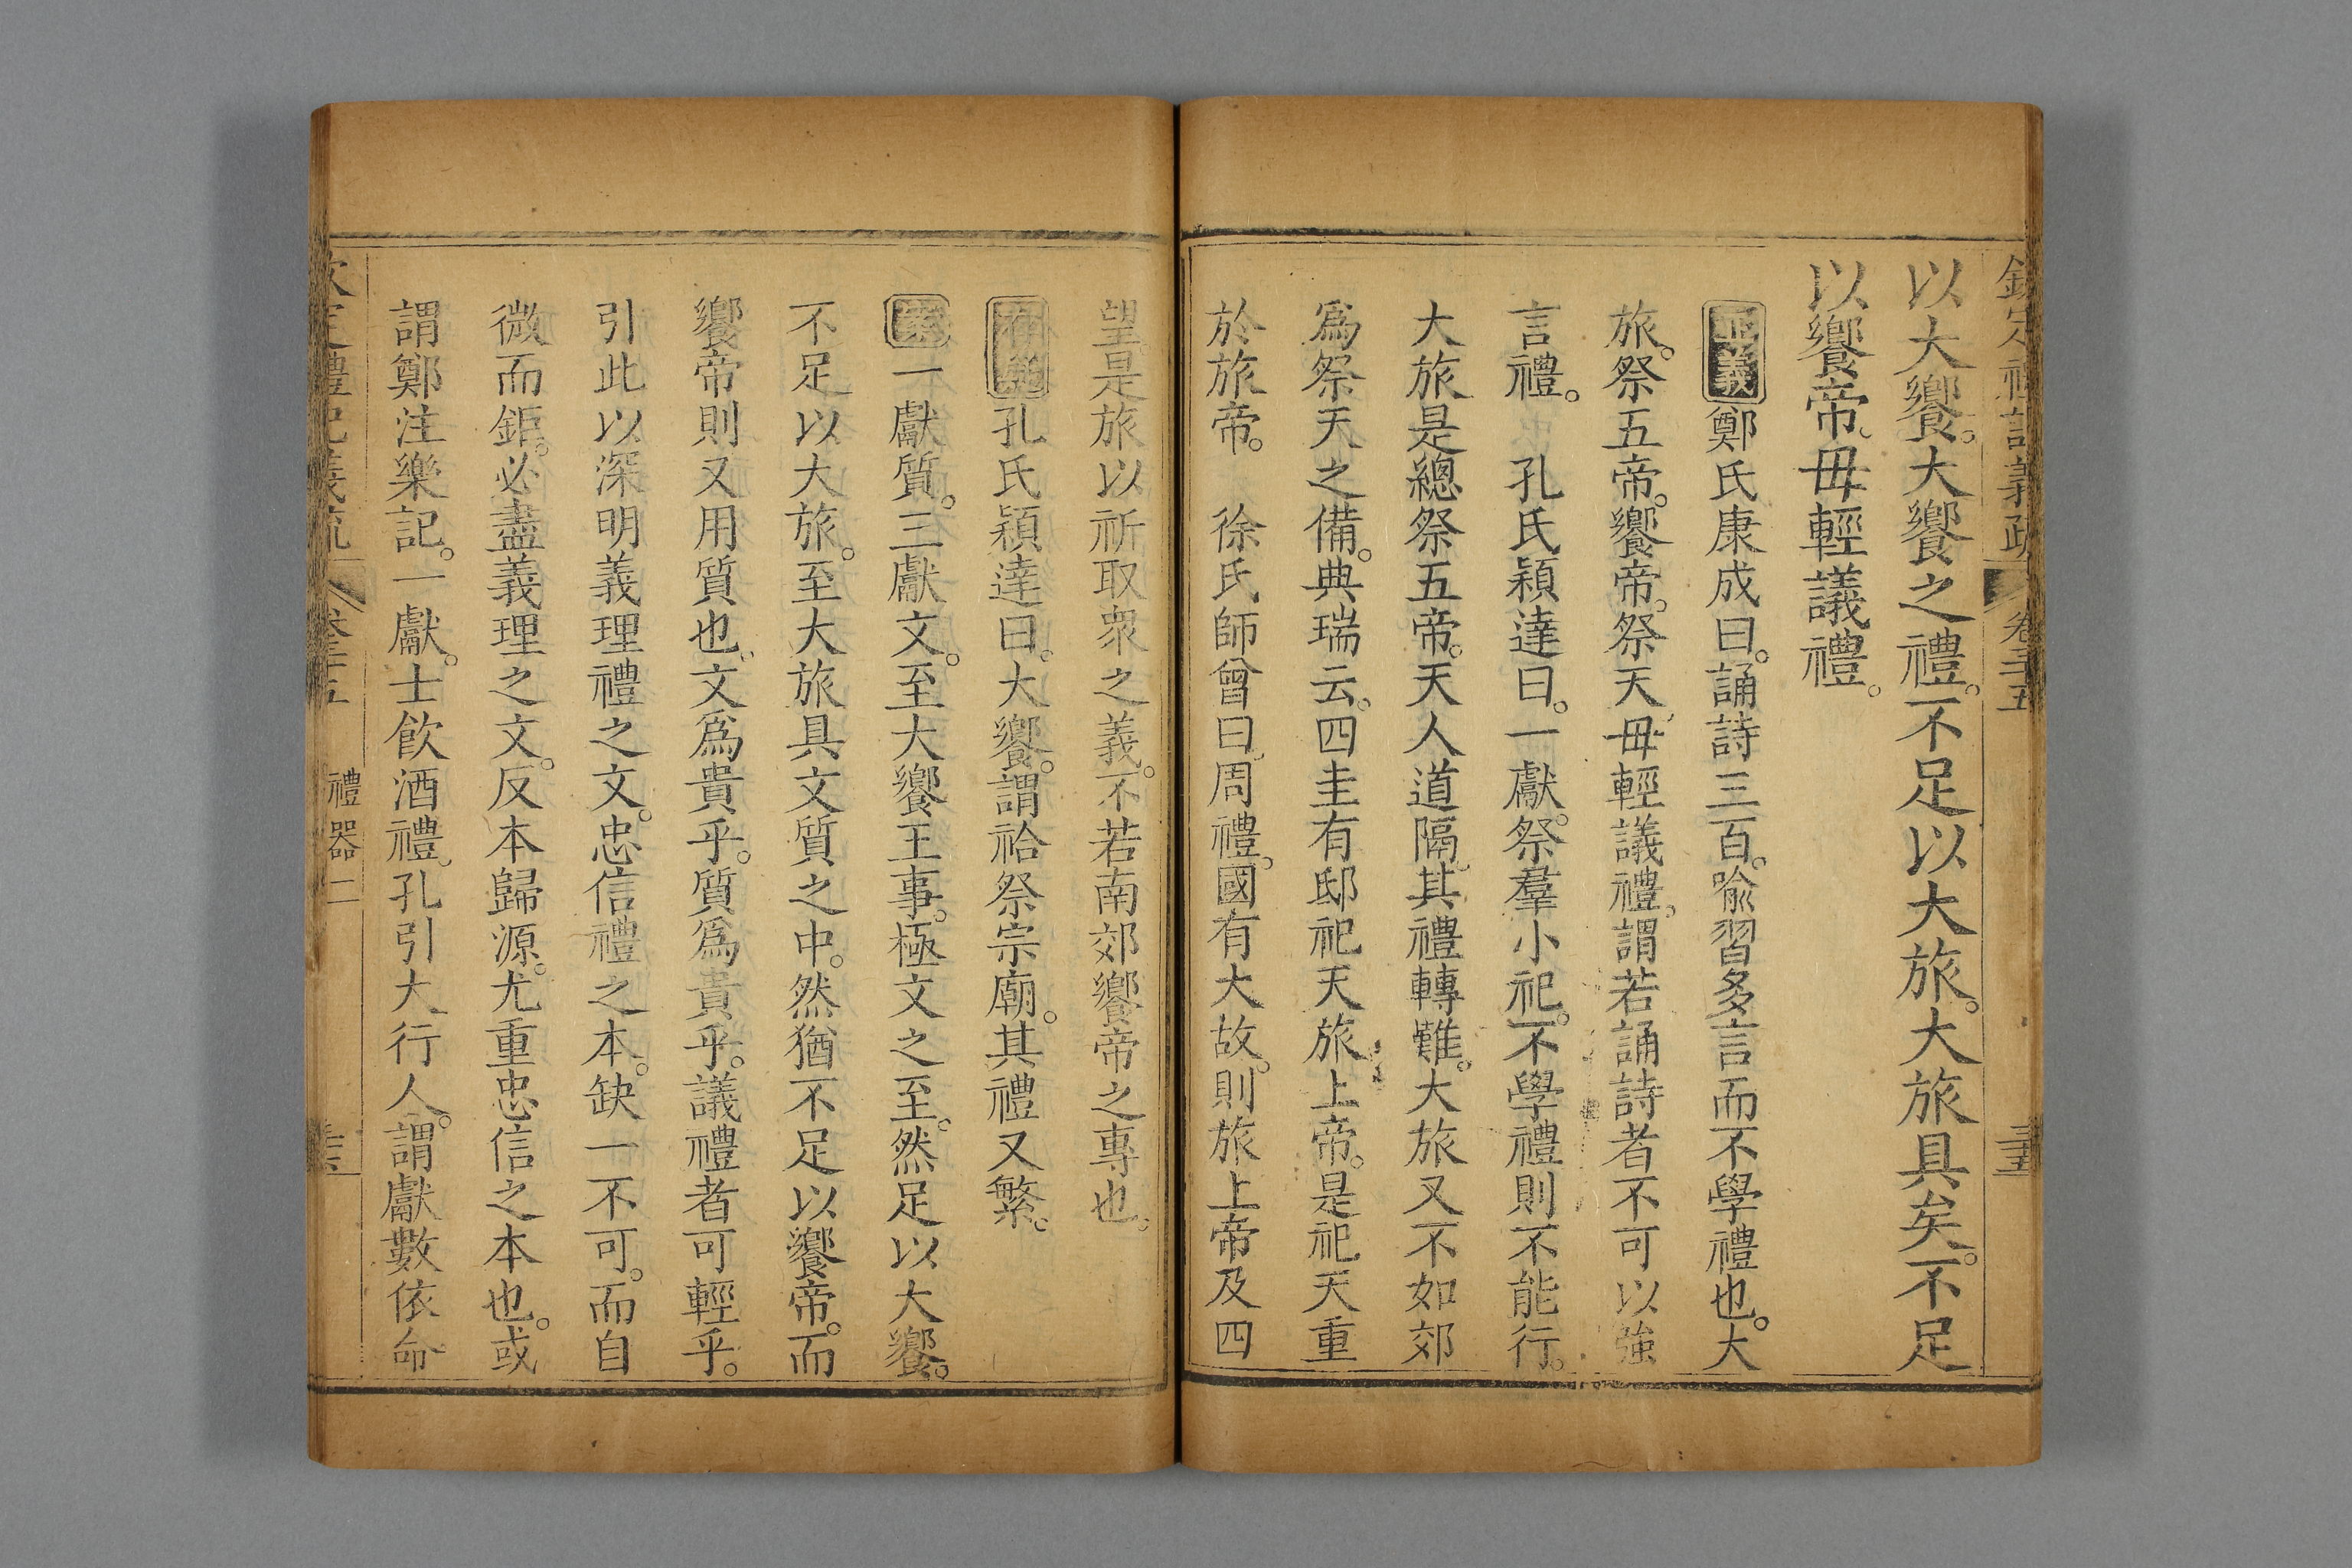 欽定禮記義疏 卷三十五 三五
以大饗。大饗之禮。不足以大旅。大旅具矣。不足
以饗帝。毋輕議禮。
正義鄭氏康成曰。誦詩三百。喻習多言而不學禮也。大
旅。祭五帝。饗帝。祭天。毋輕議禮。謂若誦詩者不可以強
言禮。 孔氏穎達曰。一獻。祭羣小祀。不學禮則不能行。
大旅是總祭五帝。天人道隔。其禮轉難。大旅又不如郊
爲祭天之備。典瑞云。四圭有邸祀天旅上帝。是祀天重
於旅帝。 徐氏師曾曰。周禮。國有大故。則旅上帝及四
望。是旅以祈取衆之義。不若南郊饗帝之專也。
存疑孔氏穎達曰。大饗。謂祫祭宗廟。其禮又繁。
案一獻質。三獻文。至大饗王事。極文之至。然足以大饗。
不足以大旅。至大旅具文質之中。然猶不足以饗帝。而
饗帝則又用質也。文爲貴乎。質爲貴乎。議禮者可輕乎。
引此以深明義理禮之文。忠信禮之本。缺一不可。而自
微而鉅。必盡義理之文。反本歸源。尤重忠信之本也。或
謂鄭注樂記。一獻。士飲酒禮。孔引大行人。謂獻數依命
欽定禮記義疏 卷三十五 禮器二